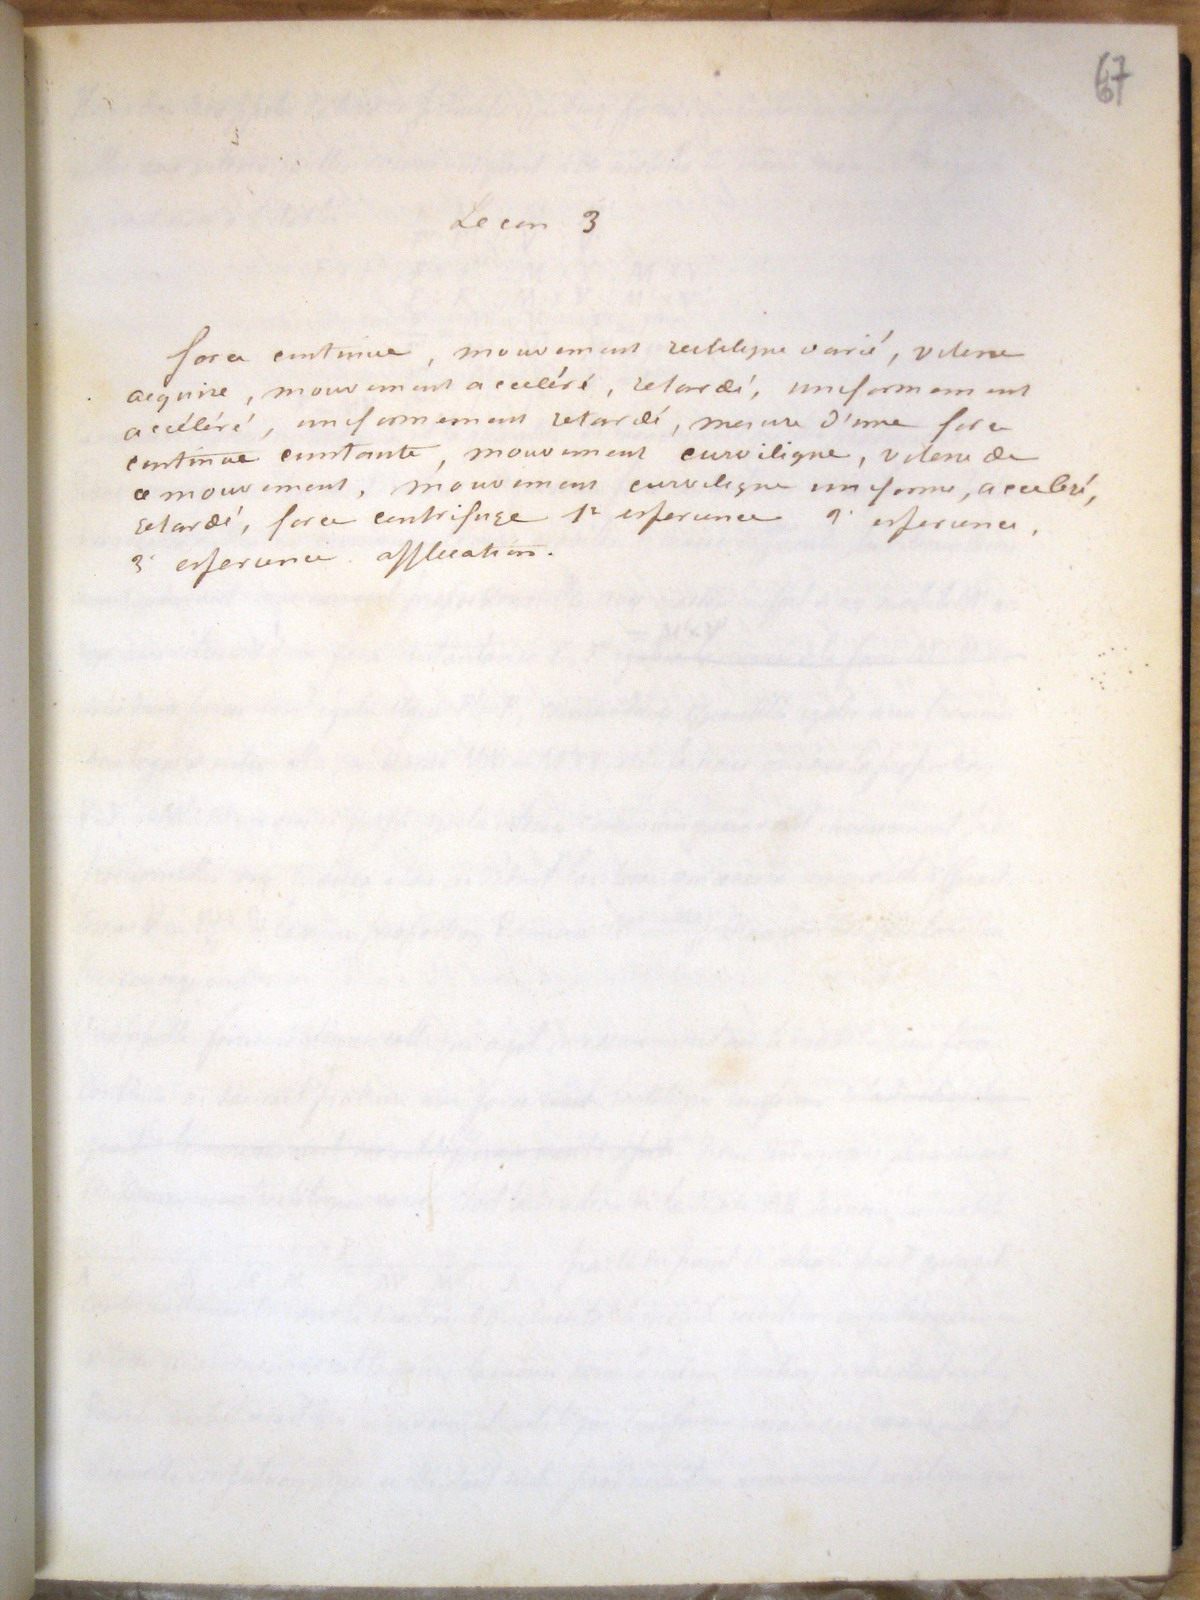 67
Lecon 3
force continue, mouvement rectiligne varié, vitesse
acquise, mouvement acceléré, retardé, uniformement
acéléré, uniformement retardé, mesure d'une force
continue constante, mouvement curviligne, vitesse de
ce mouvement, mouvement curviligne uniforme, acceleré,
retardé, force centrifuge 1re experience 2e experience,
3e experience application.